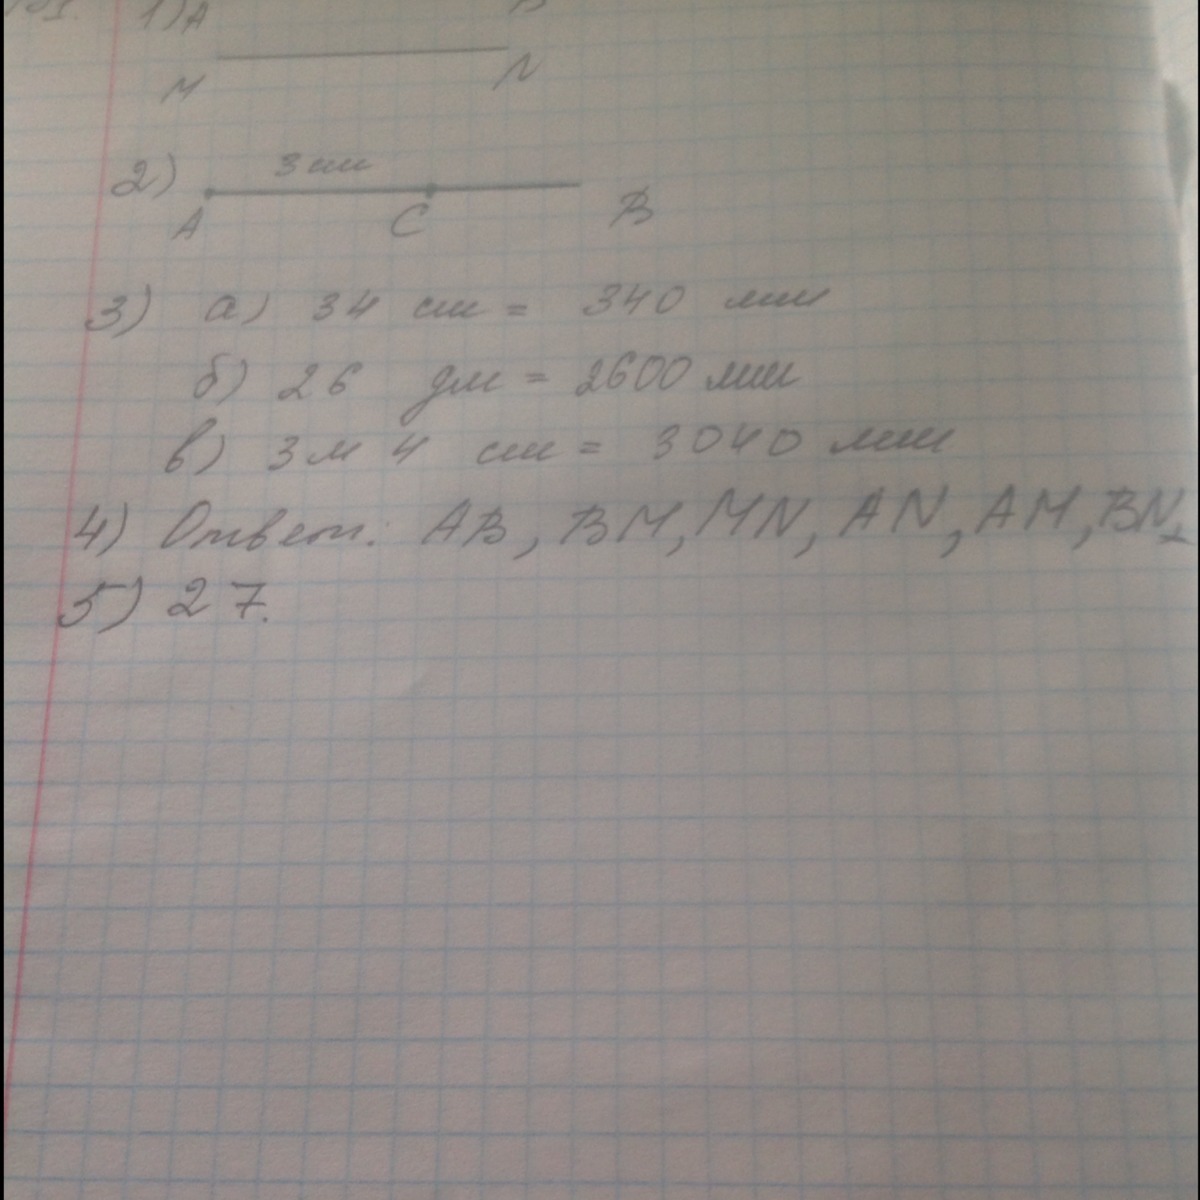 1) A
M N
2) 3 см
A C B
3) а) 34 см = 340 мм
б) 26 дм = 2600 мм
в) 3 м 4 см = 3040 мм
4) Ответ: AB, BM, MN, AN, AM, BN.
5) 27.